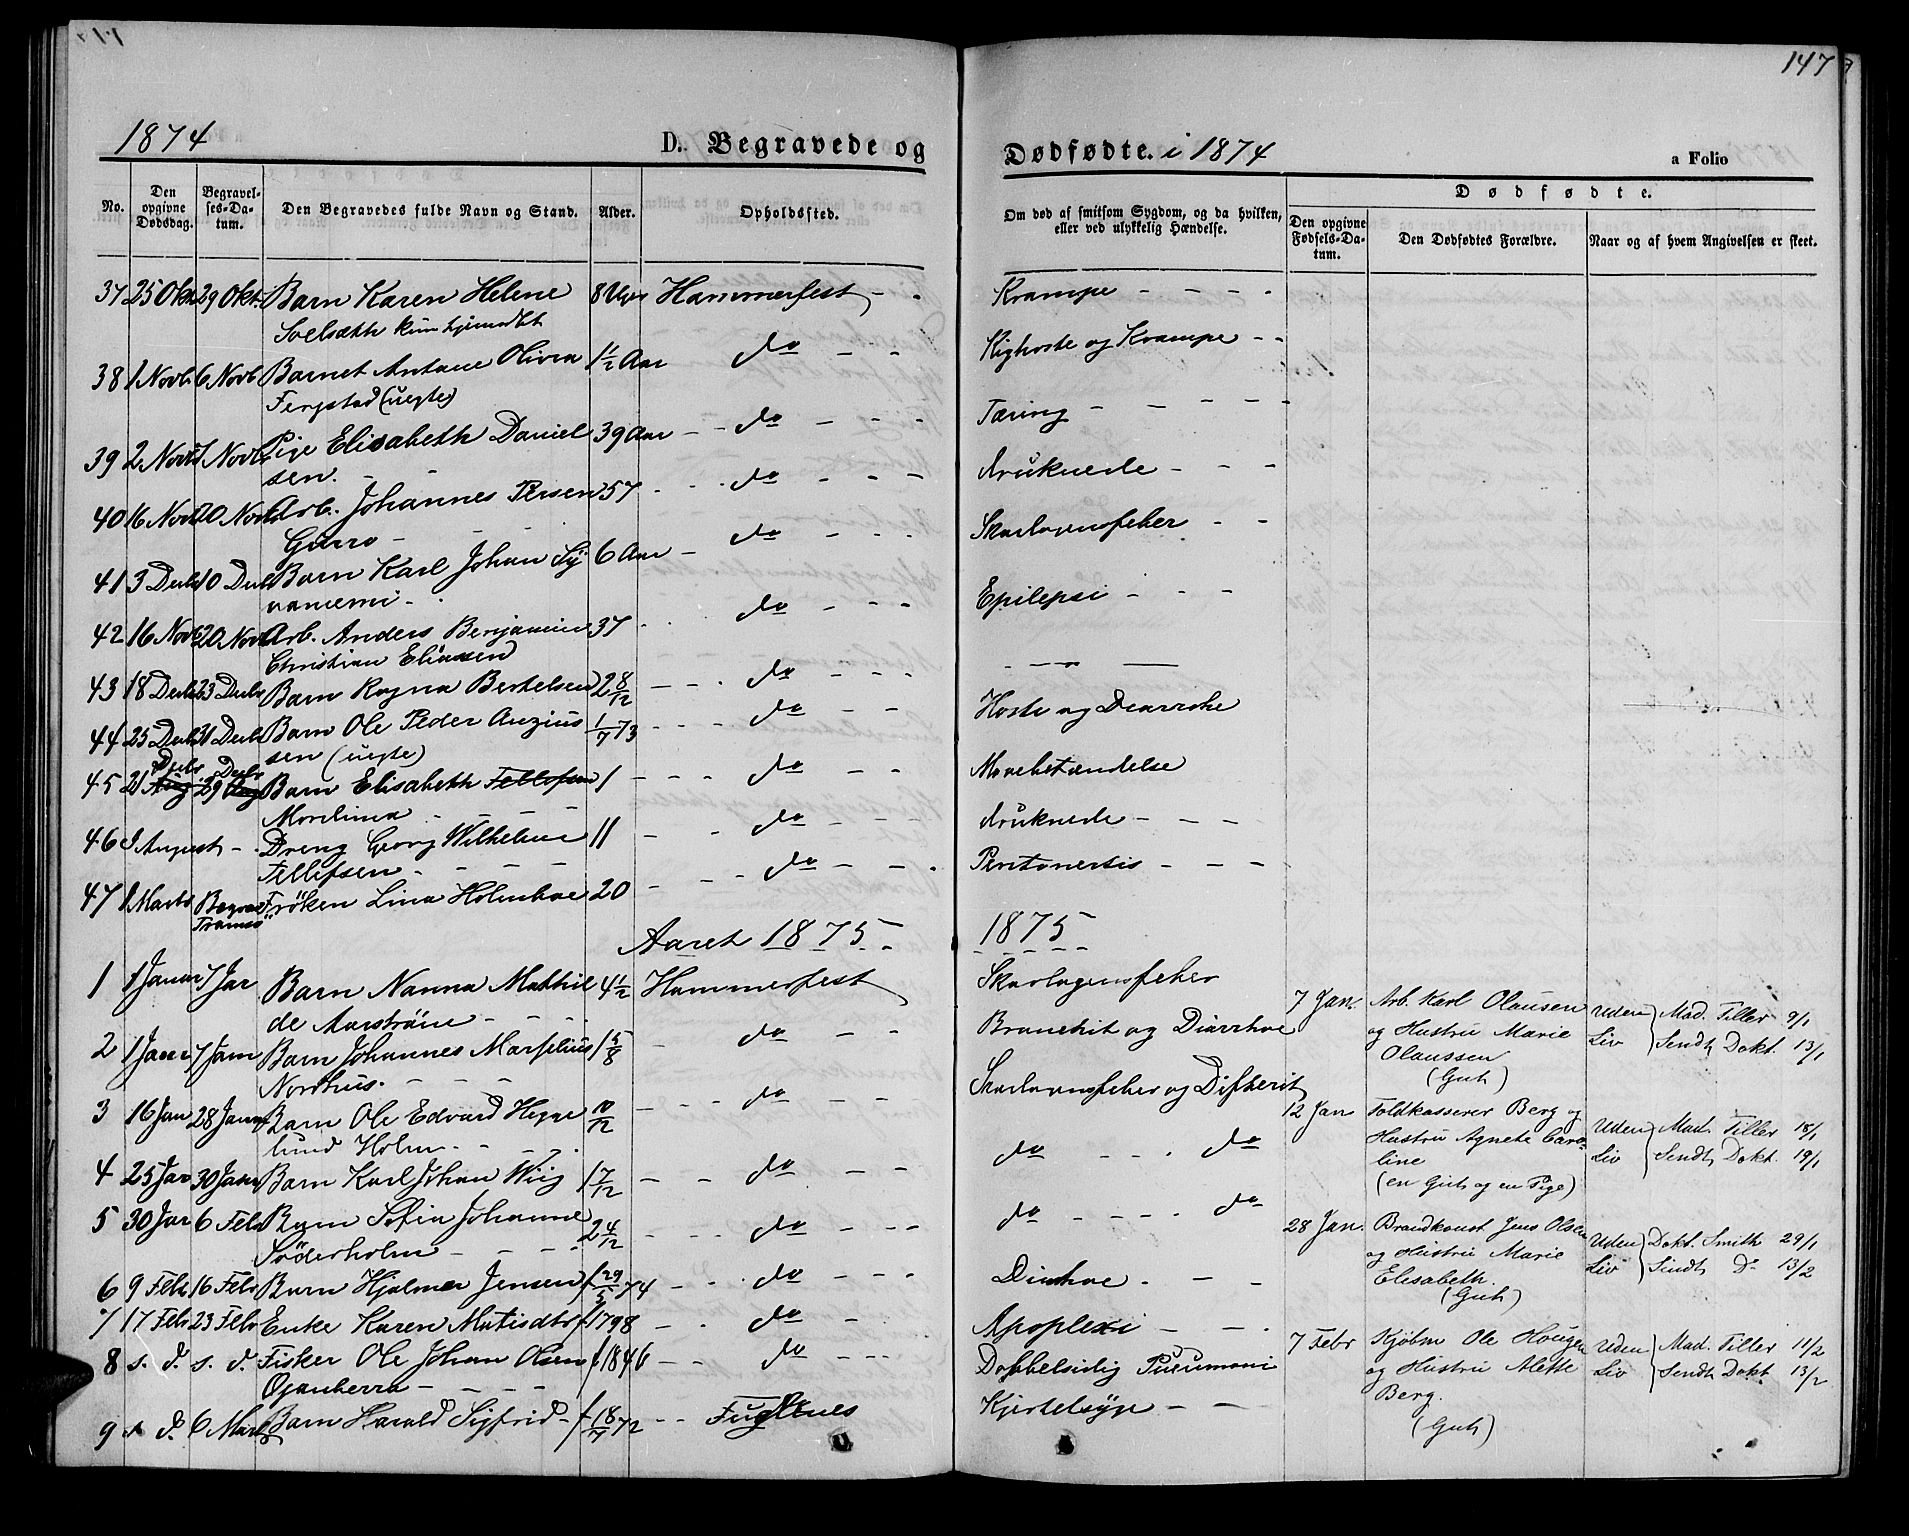 147
1874
D. Begravede og
Dødfødte. i 1874
a Folio
No.
Den opgivne Dødsdag.
Begravel-
ses-Da-
tum.
Den Begravedes fulde Navn og Stand.
Alder.
Opholdssted.
Om død af smitsom Sygdom, og da hvilken,
eller ved ulykkelig Hændelse.
Dødfødte.
Den opgivne
Fødsels-Da-
tum.
Den Dødfødtes Forældre.
Naar og af hvem Angivelsen er skeet.
37 25 Okt 29 Okt. Barn Karen Helene 8 Uger Hammerfest - Krampe - - - -
38 1 Novb 6 Novb Barnet Antane Olivia 1 1/2 Aar do - - Kighoste og Krampe - -
(uegte)
39 2 Novb 7 Novb Pige Elisabeth Daniel 39 Aar - - do - - - Tæring - - - - -
sen. - -
40 16 Novb 20 Novb Arb. Johannes Persen 57 - - do - - - druknede - - -
41 3 Decb 10 Decb Barn Karl Johan 6 Aar - do - - - Skarlagensfeber - -
42 16 Novb 20 Novb Arb. Anders Benjamin 37 - - do - - - Epilepsi - - -
Christian Eliassen
43 18 Decb 23 Decb Barn Ragna Bertelsen 2 8/12 - - - do - - -
44 25 Decb 31 Decb Barn Ole Peder Anzius 1/7 73 - - - do - - Hoste og Diarrohe
sen (uegte)
45 21 Decbr Aug 29 Decbr Aug Barn Elisabeth Tellefsen 1 - - - do - - Mavebetændelse
46 August - Dreng Georg Wilhelm 11 - - - do - - - druknede - - - -
Tellefsen - - - -
47 1 Marts Begrav Tromsø Frøken Lina Holmboe 20 - - - do - - - Peritonertis - - -
Aaret 1875 - 1875
1 1 Januar 7 Jar Barn Nanna Mathil 4 1/2 Hammerfest Skarlagensfeber
de Aarström - - - -
2 1 Janr 7 Jam Barn Johannes Marselius 1 5/8 - do - - Bronchit og Diarrhoe
Nordhus. - - - -
3 16 Jan 28 Janr Barn Ole Edvard 10/12 - - - do - - - Skarlagensfeber og Difterit
lund Holm - - -
4 25 Jar 30 Janr Barn Karl Johan Wiig 1 7/12 - - do - - do - - - do
5 30 Jar 6 Febr Barn Sofia Johanne 2 4/12 - - - do - - - do - - - - do
Söderholm - - - -
6 9 Febr 16 Febr Barn Hjalmar Jensen f 29/5 74 - - do - - - Diarhoe - - -
7 17 Febr 23 Febr Enke Karen Matisdtr f 1798 - - do - Apoplexi - - -
8 s. d. s. d. Fisker Ole Johan Olsen f 1846 - - do - - - Dobbelsidig Pneumoni
9 s d. 6 Mar Barn Harald Sigfrid - f 18/7 72 - - Fuglenes Kjertelsyge - -
7 Jan. Arb. Karl Olausen Uden Mad. Tiller 9/1
og Hustru Marie Liv Sendt Dokt. 13/1
Olaussen
(Gut)
12 Jan Toldkasserer Berg og Uden Mad. Tiller 18/1
Hustru Agnete Caro- Liv Sendt Dokt. 19/1
line
(en Gut og en Pige)
28 Jan. Brandkonst. Jens Olsen Uden Dokt. Smith 29/1
og Hustru Marie Liv Sendt Do 13/2
Elisabeth.
(Gut)
7 Febr Kjøbm Ole Hougen Uden Mad. Tiller 11/2
og Hustru Alette Liv Sendt Dokt 13/2
Berg.
(Gut)